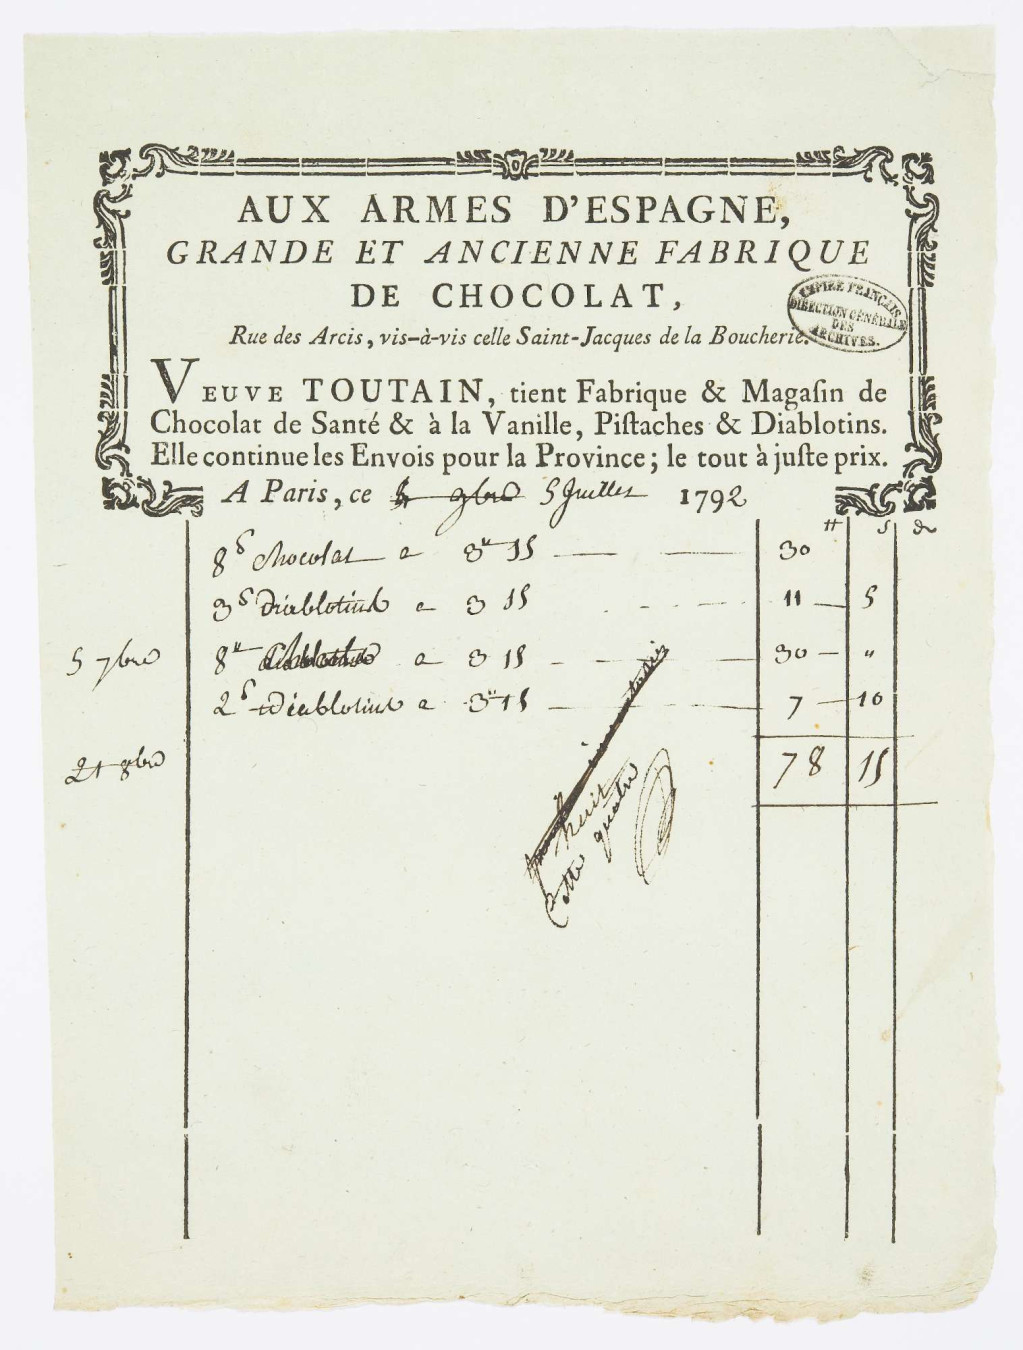 AUX ARMES D'ESPAGNE,
GRANDE ET ANCIENNE FABRIQUE
DE CHOCOLAT,
EMPIRE FRANÇAIS
DIRECTION GÉNÉRALE
DES
ARCHIVES.
Rue des Arcis, vis-à-vis celle Saint-Jacques de la Boucherie.
VEUVE TOUTAIN, tient Fabrique & Magaſin de
Chocolat de Santé & à la Vanille, Piſtaches & Diablotins.
Elle continue les Envois pour la Province; le tout à juſte prix.
A Paris, ce 5 Juillet 1792
₶ s d
8 Chocolat a 3 15 30
3 Diablotins a 3 15 11 5
5 7bre 8 a 3 15 30 "
2 Diablotins a 3 15 7 10
21 8bre 78 15
huit
Cotte quatre